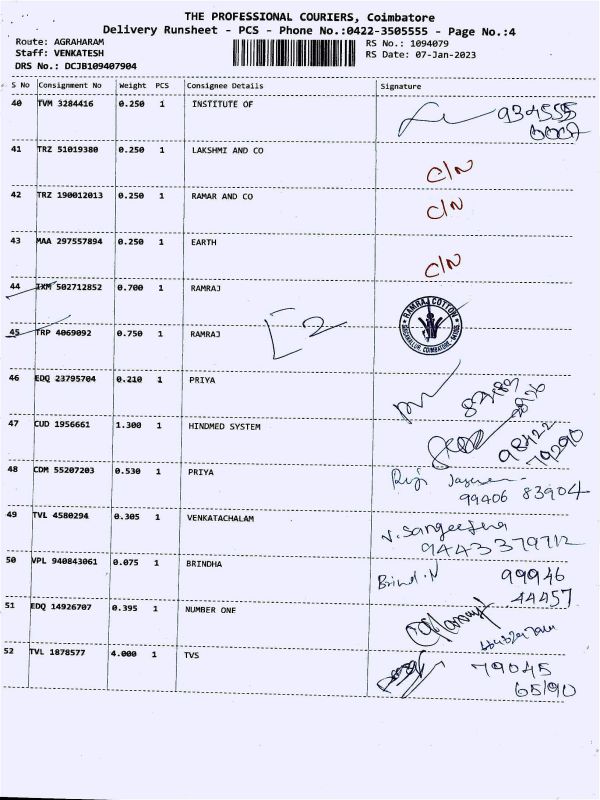 THE PROFESSIONAL COURIERS, Coimbatore
Delivery Runsheet - PCS - Phone No.:0422-3505555 - Page No.:4
Route: AGRAHARAM RS No.: 1094079
Staff: VENKATESH RS Date: 07-Jan-2023
DRS No.: DCJB109407904
S No Consignment No Weight PCS Consignee Details Signature
40 TVM 3284416 0.250 1 INSTITUTE OF
41 TRZ 51019380 0.250 1 LAKSHMI AND CO C/N
42 TRZ 190012013 0.250 1 RAMAR AND CO C/N
43 MAA 297557894 0.250 1 EARTH C/N
44 IXM 502712852 0.700 1 RAMRAJ RAMRAJ COTTON
45 TRP 4069092 0.750 1 RAMRAJ [2
46 EDQ 23795704 0.210 1 PRIYA
47 CUD 1956661 1.300 1 HINDMED SYSTEM 98422
70290
48 CDM 55207203 0.530 1 PRIYA
99406 83904
49 TVL 4580294 0.305 1 VENKATACHALAM V. Sangeetha
9443379712
50 VPL 940843061 0.075 1 BRINDHA Brind.N 99946
44457
51 EDQ 14926707 0.395 1 NUMBER ONE
52 TVL 1878577 4.000 1 TVS 79045
65190